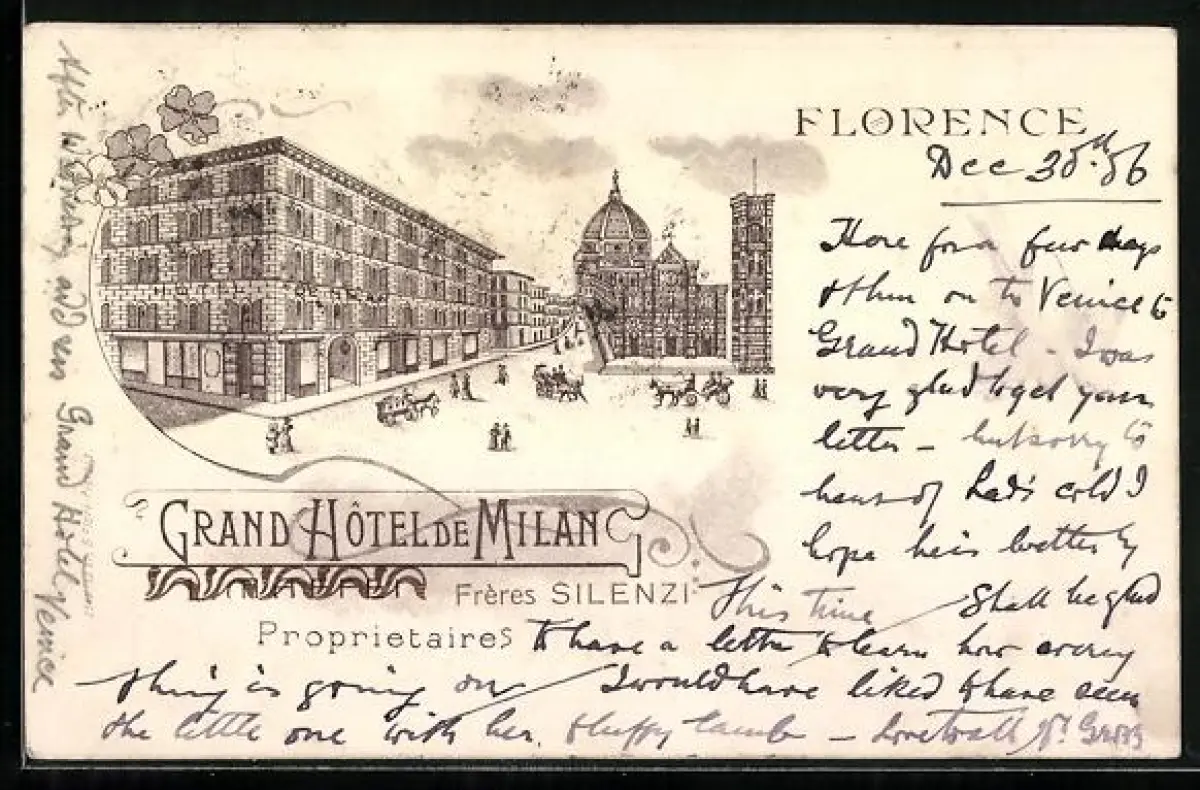 FLORENCE
Dec 30th. 06
Here for a few days
& then on to Venice to
Grand Hotel - I was
very glad to get your
letter - but sorry to
hear of Lad's cold I
hope he is better by
this time / Shall be glad
to have a letter & learn how every
thing is going on / I would have liked to have seen
the little one with her fluffy lamb - Love to all
GRAND HÔTEL DE MILAN
Frères SILENZI
Proprietaires
HOTEL
After Wednesday address Grand Hotel, Venice